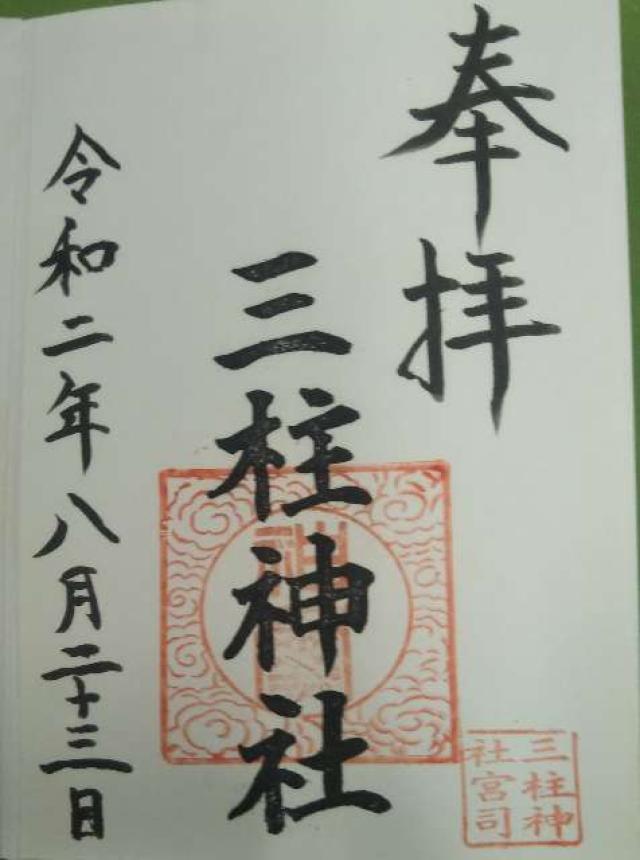 奉拝
三柱神社
令和二年八月二十三日
三柱神
社宮司